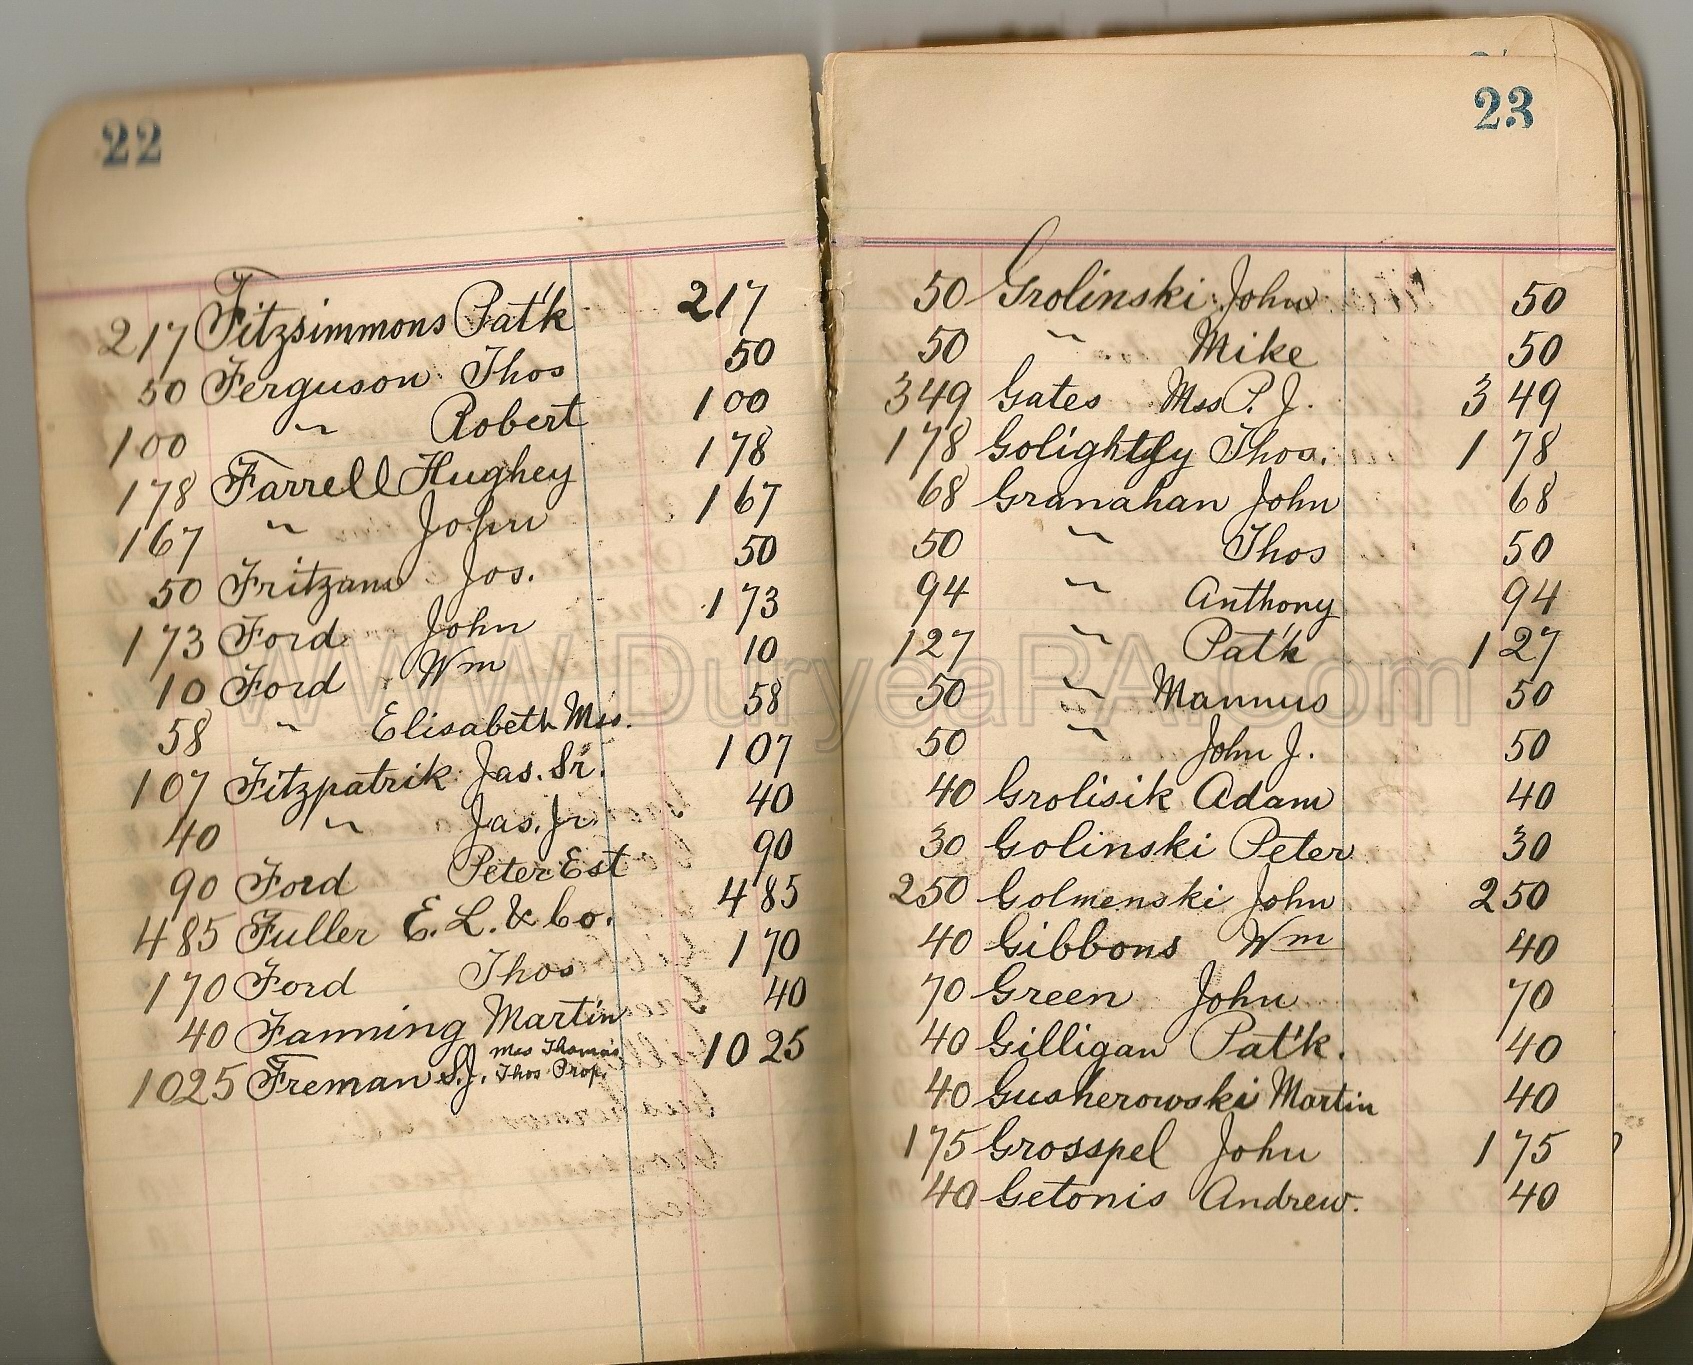 22
217 Fitzsimmons Pat'k 217
50 Ferguson Thos 50
100 " Robert 100
178 Farrell Hughey 178
167 " John 167
50 Fritzam Jos. 50
173 Ford John 173
10 Ford Wm 10
58 " Elisabeth Mrs. 58
107 Fitzpatrik Jas. Sr. 107
40 " Jas. Jr. 40
90 Ford Peter Est 90
485 Fuller E. L. & Co. 485
170 Ford Thos 170
40 Fanning Martin 40
1025 Freman S.J. Mrs Thomas Thos Prop. 1025
23
50 Grolinski John 50
50 " Mike 50
349 Gates Mrs P. J. 349
178 Golightly Thos. 178
68 Granahan John 68
50 " Thos 50
94 " Anthony 94
127 " Pat'k 127
50 " Mannus 50
50 " John J. 50
40 Grolisik Adam 40
30 Golinski Peter 30
250 Golmenski John 250
40 Gibbons Wm 40
70 Green John 70
40 Gilligan Pat'k. 40
40 Gusherowski Martin 40
175 Grosspel John 175
40 Getonis Andrew. 40
www.DuryeaPA.com